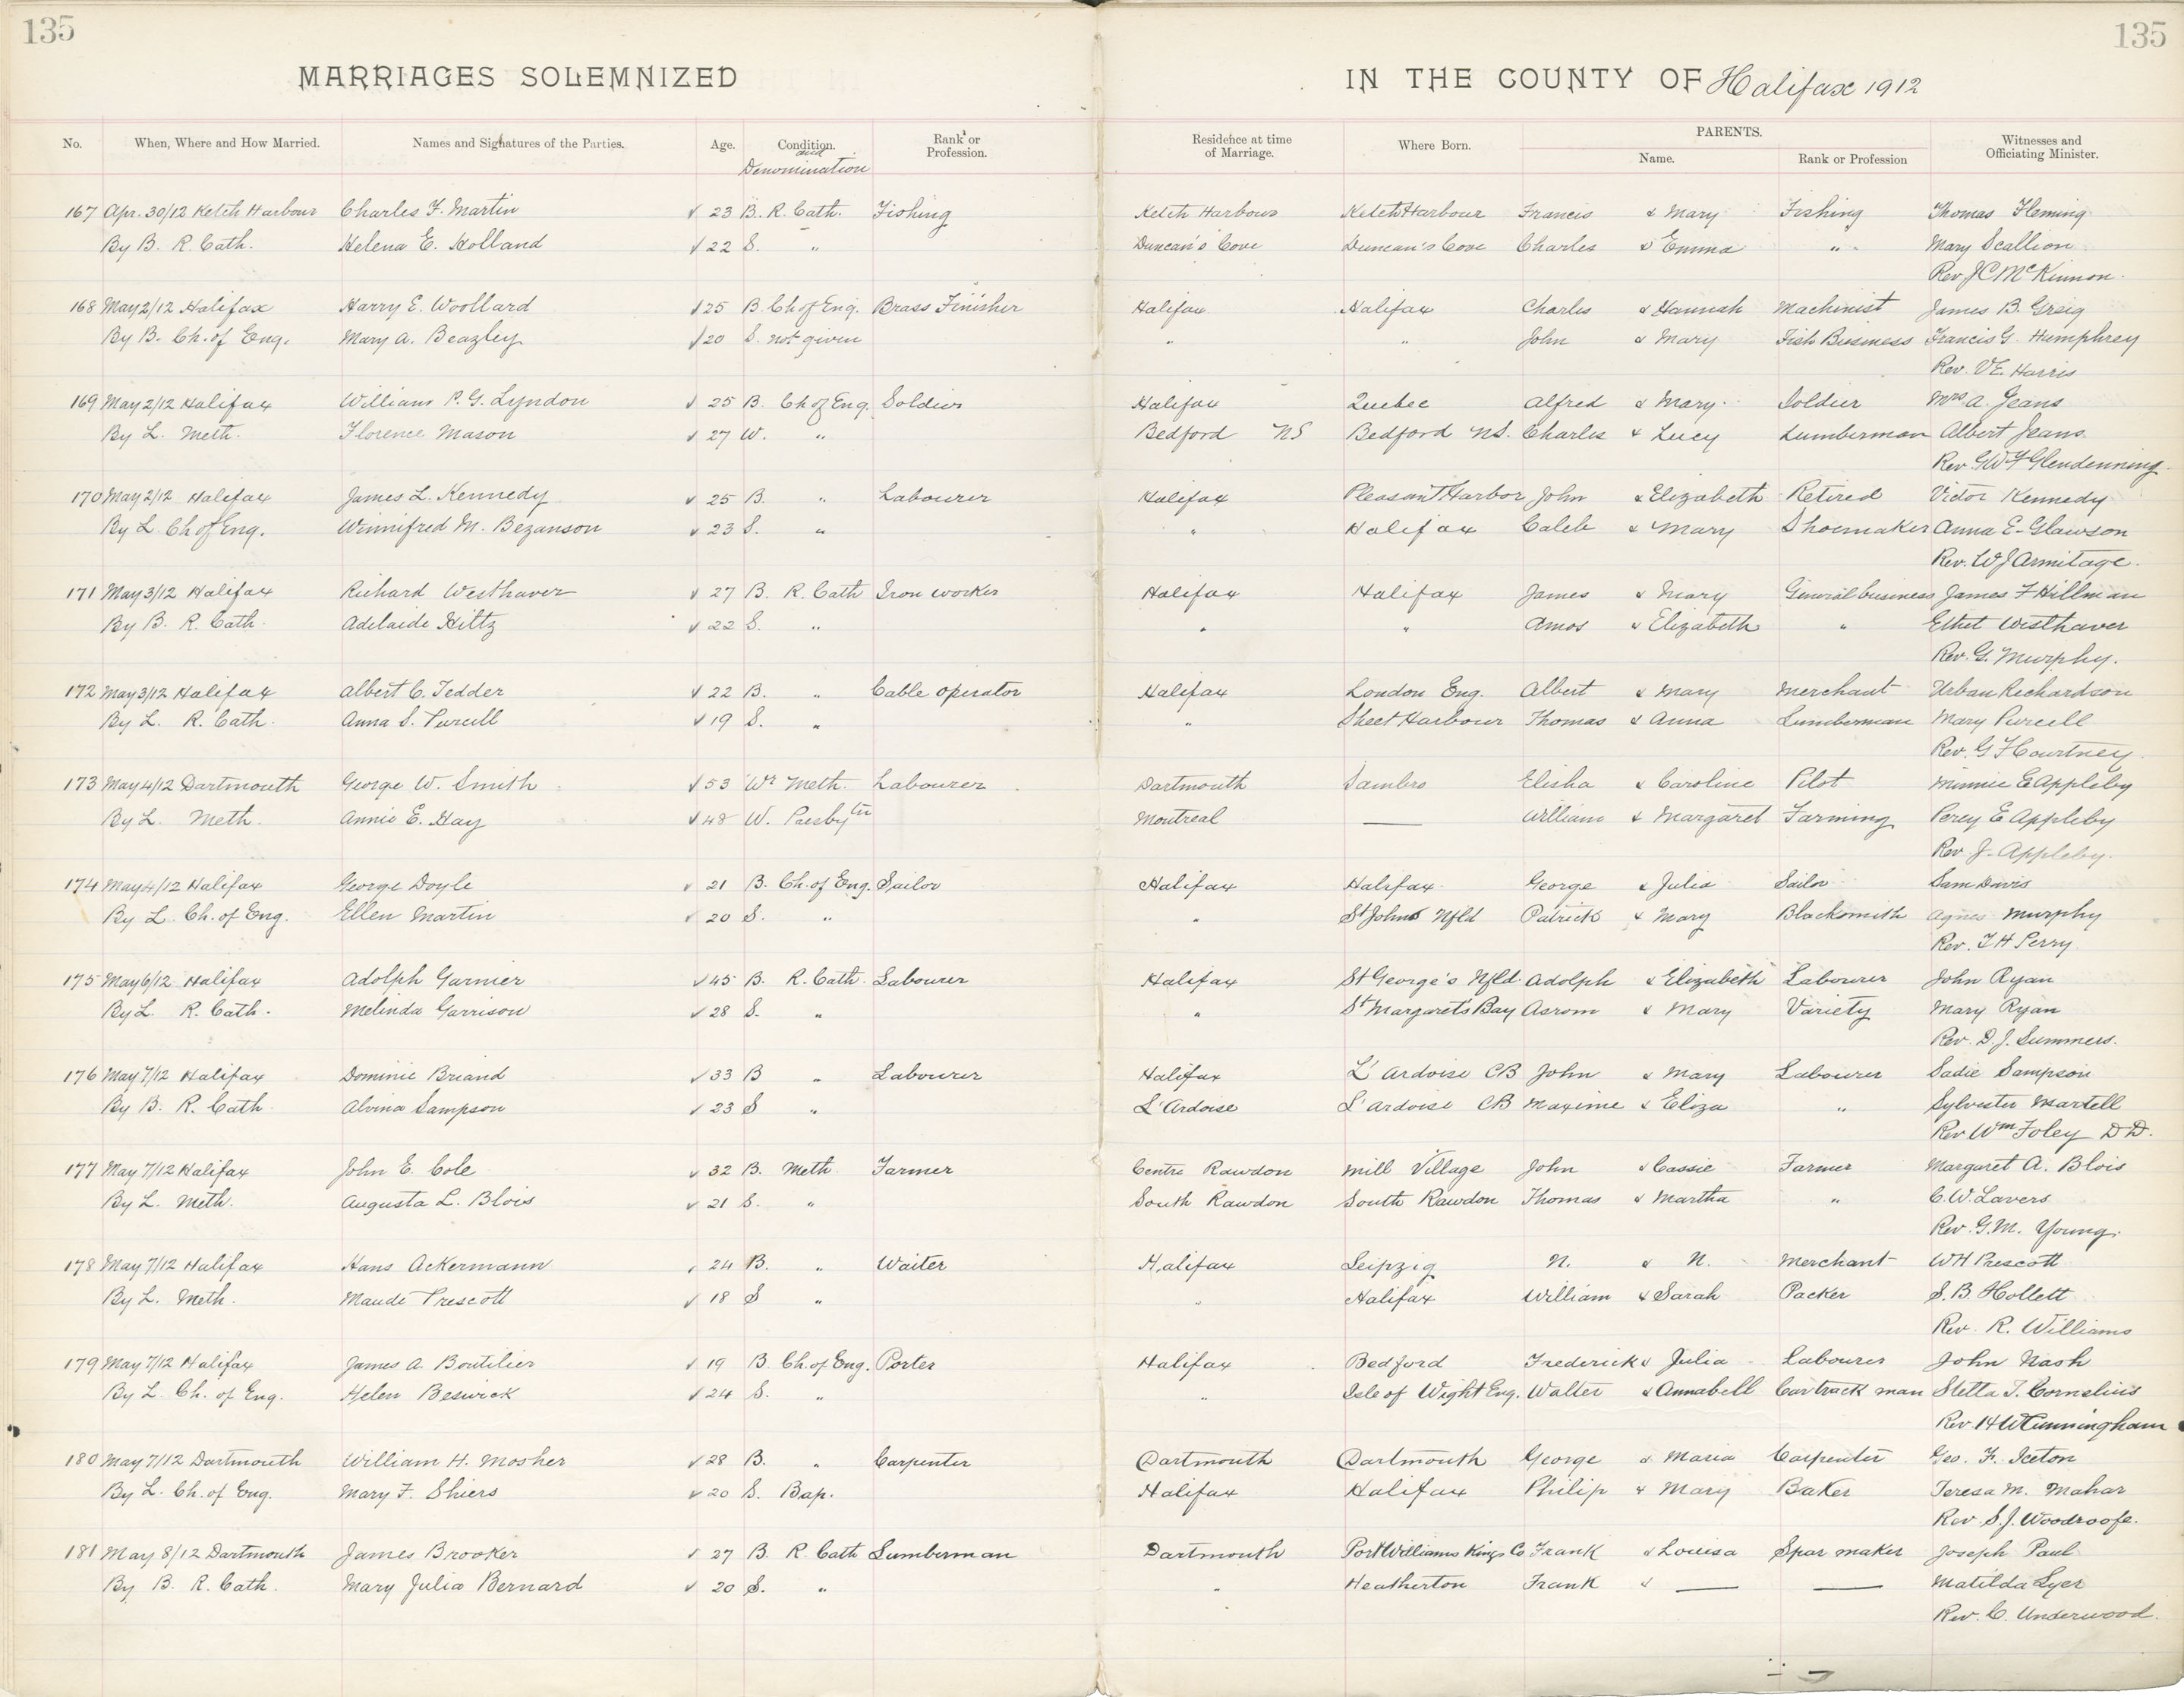 135 135
MARRIAGES SOLEMNIZED IN THE COUNTY OF Halifax 1912
No. When, Where and How Married. Names and Signatures of the Parties. Age. Condition. and Denomination Rank or Profession. Residence at time of Marriage. Where Born. PARENTS. Name. Rank or Profession Witnesses and Officiating Minister.
167 Apr. 30/12 Ketch Harbour Charles F. Martin √ 23 B. R. Cath. Fishing Ketch Harbour Ketch Harbour Francis & Mary Fishing Thomas Fleming
By B. R. Cath. Helena E. Holland √ 22 S. " Duncan's Cove Duncan's Cove Charles & Emma " Mary Scallion
Rev J C McKinnon.
168 May 2/12 Halifax Harry E. Woollard √ 25 B. Ch of Eng. Brass Finisher Halifax Halifax Charles & Hannah Machinist James B. Greig
By B. Ch. of Eng. Mary A. Beazley √ 20 S. not given " " John & Mary Fish Business Francis G. Humphrey
Rev. V E. Harris
169 May 2/12 Halifax William P. G. Lyndon √ 25 B. Ch of Eng. Soldier Halifax Quebec Alfred & Mary Soldier Mrs A. Jeans
By L. Meth. Florence Mason √ 27 W. " Bedford NS Bedford NS. Charles & Lucy Lumberman Albert Jeans.
Rev. G W F Glendenning
170 May 2/12 Halifax James L. Kennedy √ 25 B. " Labourer Halifax Pleasant Harbor John & Elizabeth Retired Victor Kennedy
By L. Ch of Eng. Winnifred M. Bezanson √ 23 S. " " Halifax Caleb & Mary Shoemaker Anna E. Glawson
Rev. W J Armitage.
171 May 3/12 Halifax Richard Westhaver √ 27 B. R. Cath Iron worker Halifax Halifax James & Mary General business James F Hillman
By B. R. Cath. Adelaide Hiltz √ 22 S. " " " Amos & Elizabeth " Ethel Westhaver
Rev. G. Murphy.
172 May 3/12 Halifax Albert C. Tedder √ 22 B. " Cable operator Halifax London Eng. Albert & Mary Merchant Urban Richardson
By L. R. Cath. Anna S. Purcell √ 19 S. " " Sheet Harbour Thomas & Anna Lumberman Mary Purcell
Rev. G F Courtney
173 May 4/12 Dartmouth George W. Smith √ 53 Wr Meth. Labourer Dartmouth Sambro Elisha & Caroline Pilot Minnie E Appleby
By L. Meth. Annie E. Hay √ 48 W. Presbytn Montreal — William & Margaret Farming Percy E Appleby
Rev. J. Appleby.
174 May 4/12 Halifax George Doyle √ 21 B. Ch. of Eng. Sailor Halifax Halifax George & Julia Sailor Sam Davis
By L. Ch. of Eng. Ellen Martin √ 20 S. " " St Johns Nfld Patrick & Mary Blacksmith Agnes Murphy
Rev. T H Perry.
175 May 6/12 Halifax Adolph Garnier √ 45 B. R. Cath. Labourer Halifax St George's Nfld. Adolph & Elizabeth Labourer John Ryan
By L. R. Cath. Melinda Garrison √ 28 S. " " St Margaret's Bay & Mary Variety Mary Ryan
Rev. D. J. Summers.
176 May 7/12 Halifax Dominic Briand √ 33 B " Labourer Halifax L'Ardoise CB John & Mary Labourer Sadie Sampson
By B. R. Cath. Alvina Sampson √ 23 S " L'Ardoise L'Ardoise CB Maxime & Eliza " Sylvester Martell
Rev Wm Foley D D.
177 May 7/12 Halifax John E. Cole √ 32 B. Meth. Farmer Centre Rawdon Mill Village John & Cassie Farmer Margaret A. Blois
By L. Meth. Augusta L. Blois √ 21 S. " South Rawdon South Rawdon Thomas & Martha " C. W. Lavers
Rev. G. M. Young.
178 May 7/12 Halifax Hans Ackermann √ 24 B. " Waiter Halifax Leipzig N. & N. Merchant W H Prescott
By L. Meth. Maude Prescott √ 18 S " " Halifax William & Sarah Packer S. B. Hollett
Rev. R. Williams
179 May 7/12 Halifax James A. Boutilier √ 19 B. Ch. of Eng. Porter Halifax Bedford Frederick & Julia Labourer John Nash
By L. Ch. of Eng. Helen Beswick √ 24 S. " " Isle of Wight Eng. Walter & Annabell Car track man Stella T. Cornelius
Rev H W Cunningham
180 May 7/12 Dartmouth William H. Mosher √ 28 B. " Carpenter Dartmouth Dartmouth George & Maria Carpenter Geo. F. Iceton
By L. Ch. of Eng. Mary F. Shiers √ 20 S. Bap. Halifax Halifax Philip & Mary Baker Teresa M. Mahar
Rev. S. J. Woodroofe.
181 May 8/12 Dartmouth James Brooker √ 27 B. R. Cath Lumberman Dartmouth Port Williams Kings Co Frank & Louisa Spar maker Joseph Paul
By B. R. Cath. Mary Julia Bernard √ 20 S. " " Heatherton Frank & — — Matilda Lyer
Rev. C. Underwood.